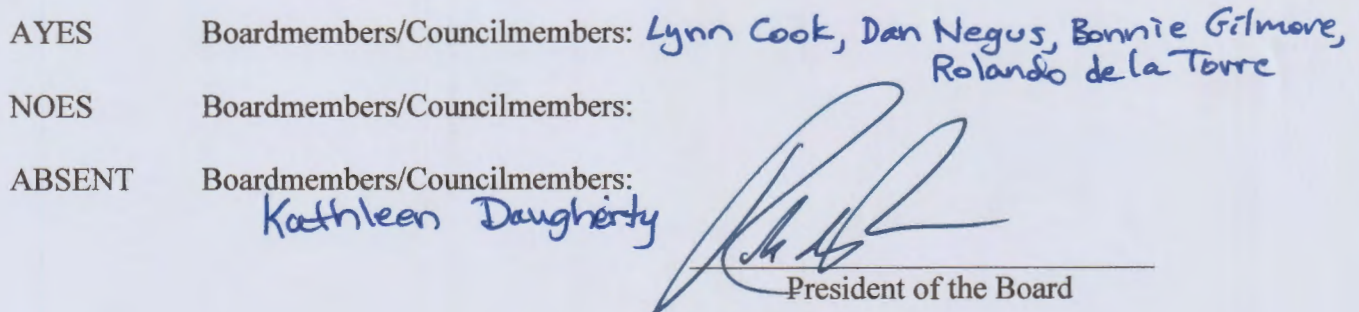 AYES Boardmembers/Councilmembers: Lynn Cook, Dan Negus, Bonnie Gilmore,
Rolando de la Torre
NOES Boardmembers/Councilmembers:
ABSENT Boardmembers/Councilmembers:
Kathleen Daugherty
President of the Board